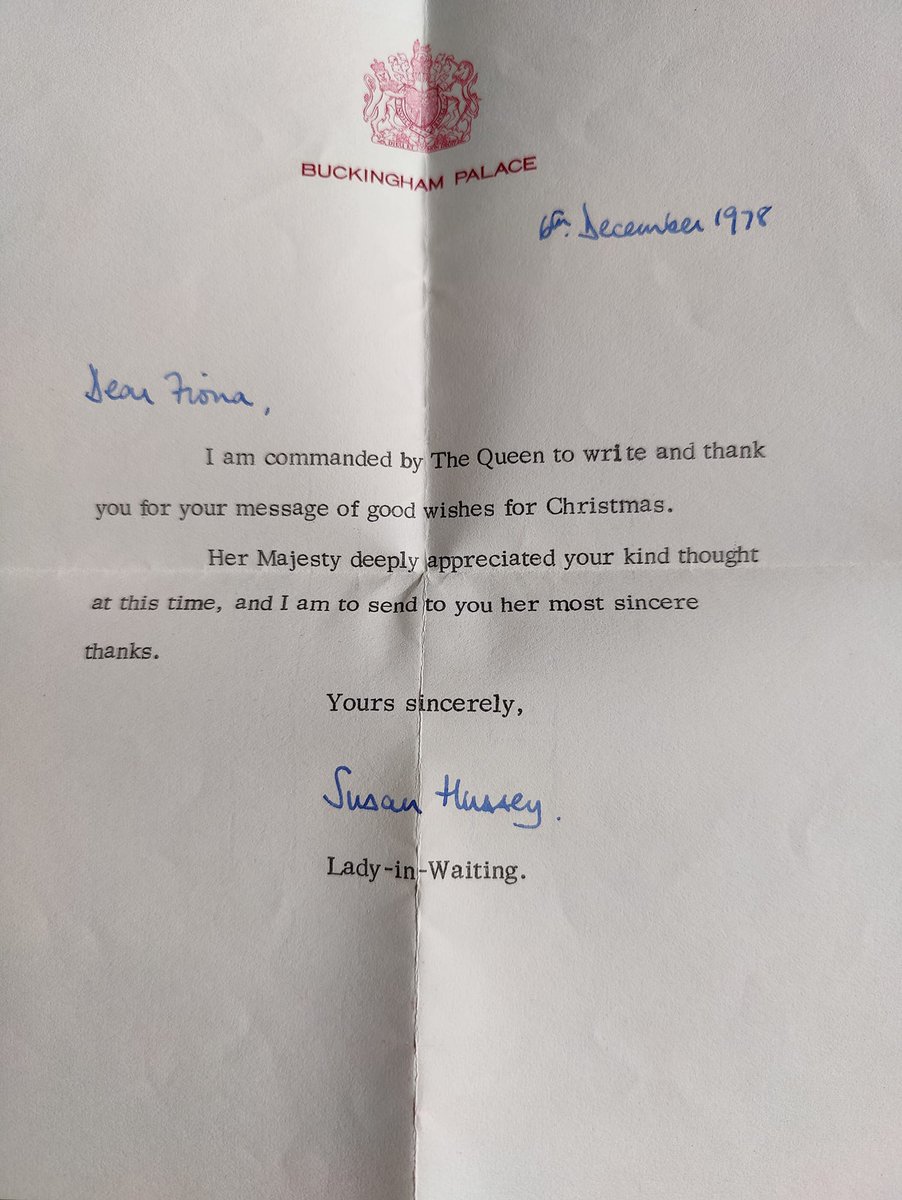 BUCKINGHAM PALACE
6th. December 1978
Dear Fiona,
I am commanded by The Queen to write and thank
you for your message of good wishes for Christmas.
Her Majesty deeply appreciated your kind thought
at this time, and I am to send to you her most sincere
thanks.
Yours sincerely,
Susan Hussey.
Lady-in-Waiting.